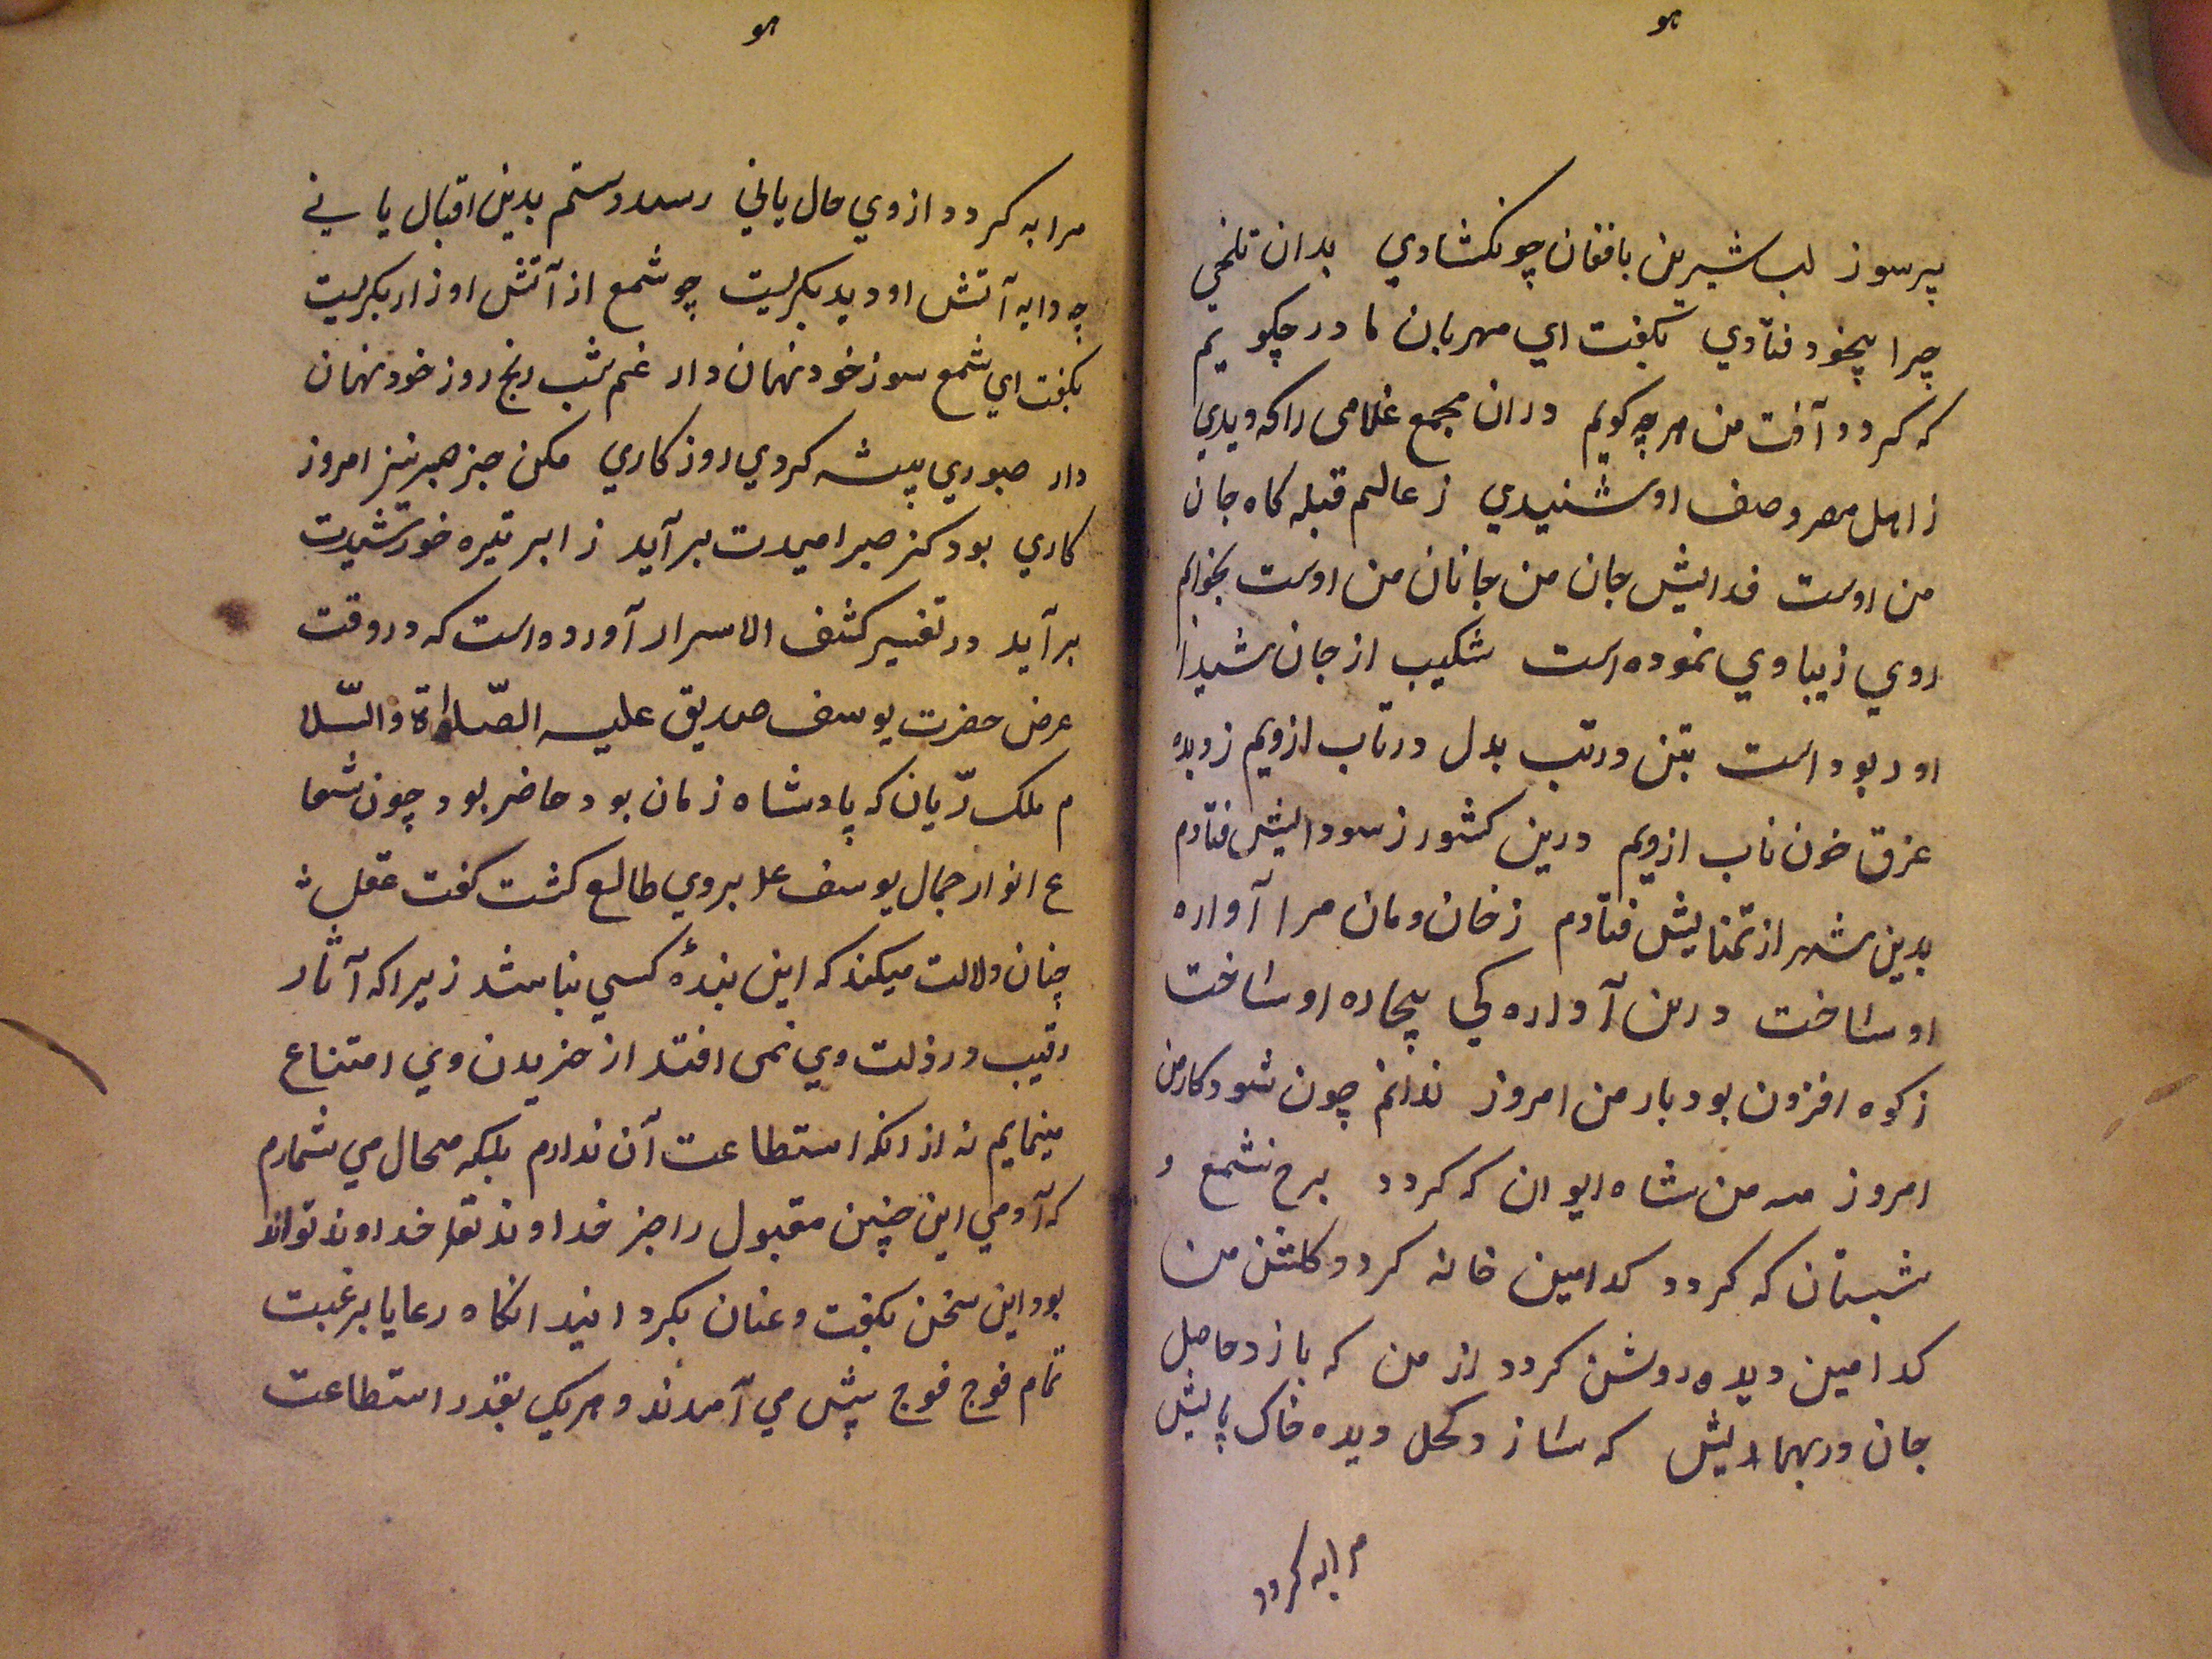 هو
پرسوز لب شیرین بافغان چو نکشادي بدان تلخي
چرا بیخود فتادي بکفت اي مهربان مادر چکویم
که کردد آفت من هرچه کویم دران مجمع غلامی را که دیدي
ز اهل مصر وصف او شنیدي ز عالم قبله کاه جان
من اوست فدایش جان من جانان من اوست بخوابم
روي زیبا وي نموده است شکیب از جان شیدا
او ربود است بتن در تب بدل در تاب ازویم ز دیده
غرق خون ناب ازویم درین کشور ز سودایش فتادم
بدین شهر از تمنایش فتادم ز خان و مان مرا آواره
او ساخت درین آواره کي بیچاره او ساخت
ز کوه افزون بود بار من امروز ندانم چون شود کار من
امروز مه من شاه ایوان که کردد برخ شمع و
شبستان که کردد کدامین خانه کردد کلشن من
کدامین دیده روشن کردد از من که یازد حاصل
جان در بهمایش که سازد کحل دیده خاک پایش
مرا به کردد
هو
مرا به کردد از وي حال یا ني رسد دستم بدین اقبال یا نے
چو دایه آتش او دید بکریست چو شمع از آتش او زار بکریست
بکفت اي شمع سوز خود نهان دار غم شب رنج روز خود نهان
دار صبوري پیشه کردي روزکاري مکن جز صبر نیز امروز
کاري بود کز صبر امیدت برآید ز ابر تیره خورشیدت
برآید در تفسیر کشف الاسرار آورده است که در وقت
عرض حضرت یوسف صدیق علیه الصّلوٰة والسّلا
م ملک رّیان که پادشاه زمان بود حاضر بود چون شعا
ع انوار جمال یوسف علـ بروي طالع کشت کفت عقل
چنان دلالت میکند که این بندهٔ کسي نباشد زیرا که آثار
رقیت و رذلت وي نمی افتد از خریدن وي امتناع
مینمایم نه از انکه استطاعت آن ندارم بلکه محال مي شمارم
که آدمي این چنین مقبول را جز خداوند تعا خداوند تواند
بود این سخن بکفت و عنان بکردانید انکاه رعایا برغبت
تمام فوج فوج پیش مي آمدند و هریک بقدر استطاعت